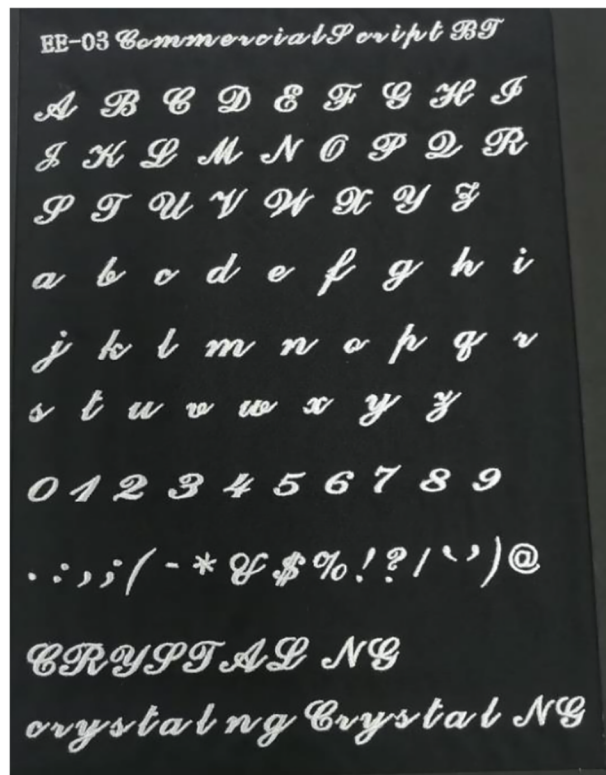 EE-03 CommercialScript BT
A B C D E F G H I
J K L M N O P Q R
S T U V W X Y Z
a b c d e f g h i
j k l m n o p q r
s t u v w x y z
0 1 2 3 4 5 6 7 8 9
. : , ; ( - * & $ % ! ? / ‘ ’ ) @
CRYSTAL NG
crystal ng Crystal NG